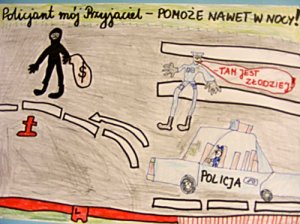 Policjant mój Przyjaciel – POMOŻE NAWET W NOCY!
$
- TAM JEST
ZŁODZIEJ!
POLICJA